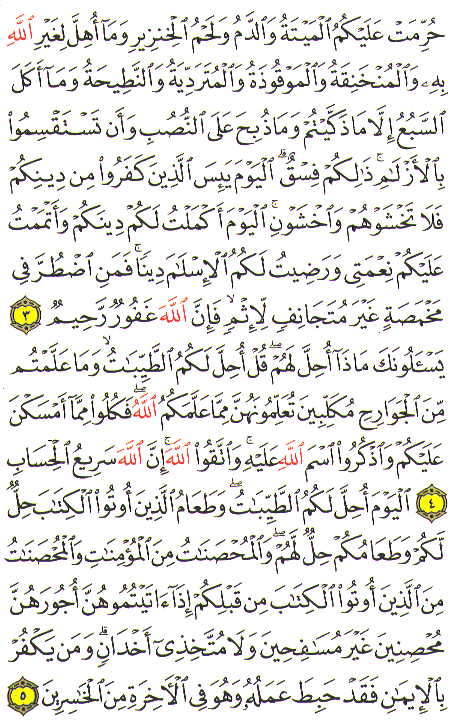 حُرِّمَتْ عَلَيْكُمُ الْمَيْتَةُ وَالدَّمُ وَلَحْمُ الْخِنزِيرِ وَمَا أُهِلَّ لِغَيْرِ اللَّهِ
بِهِ وَالْمُنْخَنِقَةُ وَالْمَوْقُوذَةُ وَالْمُتَرَدِّيَةُ وَالنَّطِيحَةُ وَمَا أَكَلَ
السَّبُعُ إِلَّا مَا ذَكَّيْتُمْ وَمَا ذُبِحَ عَلَى النُّصُبِ وَأَن تَسْتَقْسِمُوا
بِالْأَزْلَٰمِ ۚ ذَٰلِكُمْ فِسْقٌ ۗ الْيَوْمَ يَئِسَ الَّذِينَ كَفَرُوا مِن دِينِكُمْ
فَلَا تَخْشَوْهُمْ وَاخْشَوْنِ ۚ الْيَوْمَ أَكْمَلْتُ لَكُمْ دِينَكُمْ وَأَتْمَمْتُ
عَلَيْكُمْ نِعْمَتِي وَرَضِيتُ لَكُمُ الْإِسْلَٰمَ دِينًا ۚ فَمَنِ اضْطُرَّ فِي
مَخْمَصَةٍ غَيْرَ مُتَجَانِفٍ لِّإِثْمٍ ۙ فَإِنَّ اللَّهَ غَفُورٌ رَّحِيمٌ ٣
يَسْـَٔلُونَكَ مَاذَا أُحِلَّ لَهُمْ ۖ قُلْ أُحِلَّ لَكُمُ الطَّيِّبَٰتُ ۙ وَمَا عَلَّمْتُم
مِّنَ الْجَوَارِحِ مُكَلِّبِينَ تُعَلِّمُونَهُنَّ مِمَّا عَلَّمَكُمُ اللَّهُ ۖ فَكُلُوا مِمَّا أَمْسَكْنَ
عَلَيْكُمْ وَاذْكُرُوا اسْمَ اللَّهِ عَلَيْهِ ۖ وَاتَّقُوا اللَّهَ ۚ إِنَّ اللَّهَ سَرِيعُ الْحِسَابِ
٤ الْيَوْمَ أُحِلَّ لَكُمُ الطَّيِّبَٰتُ ۖ وَطَعَامُ الَّذِينَ أُوتُوا الْكِتَٰبَ حِلٌّ
لَّكُمْ وَطَعَامُكُمْ حِلٌّ لَّهُمْ ۖ وَالْمُحْصَنَٰتُ مِنَ الْمُؤْمِنَٰتِ وَالْمُحْصَنَٰتُ
مِنَ الَّذِينَ أُوتُوا الْكِتَٰبَ مِن قَبْلِكُمْ إِذَا ءَاتَيْتُمُوهُنَّ أُجُورَهُنَّ
مُحْصِنِينَ غَيْرَ مُسَٰفِحِينَ وَلَا مُتَّخِذِي أَخْدَانٍ ۗ وَمَن يَكْفُرْ
بِالْإِيمَٰنِ فَقَدْ حَبِطَ عَمَلُهُ وَهُوَ فِي الْآخِرَةِ مِنَ الْخَٰسِرِينَ ٥